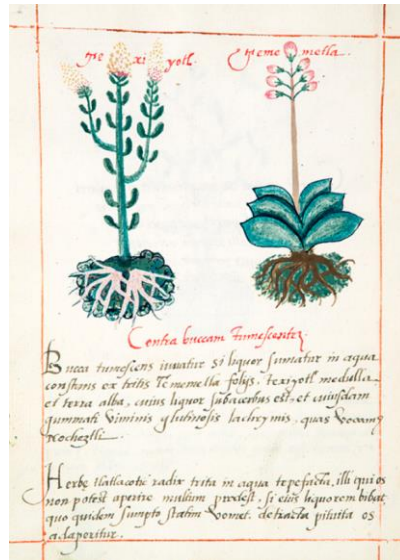 Te xi yotl. Teme metla.
Contra buccam tumescentē.
Bucca tumescens iuuatur si liquor sumatur in aqua
constans ex tritis Tememetla folijs, texiyotl medulla
et terra alba, cuius liquor subacerbus est, et cuiusdam
gummati viminis glutinosis lachrymis, quas vocamꝰ
Nocheztli
Herbę tlatlacotic radix trita in aqua tepefacta, illi qui os
non potest aperire multum prodest, si eius liquorem bibat,
quo quidem sumpto statim vomet. detracta pituita os
adaperitur.